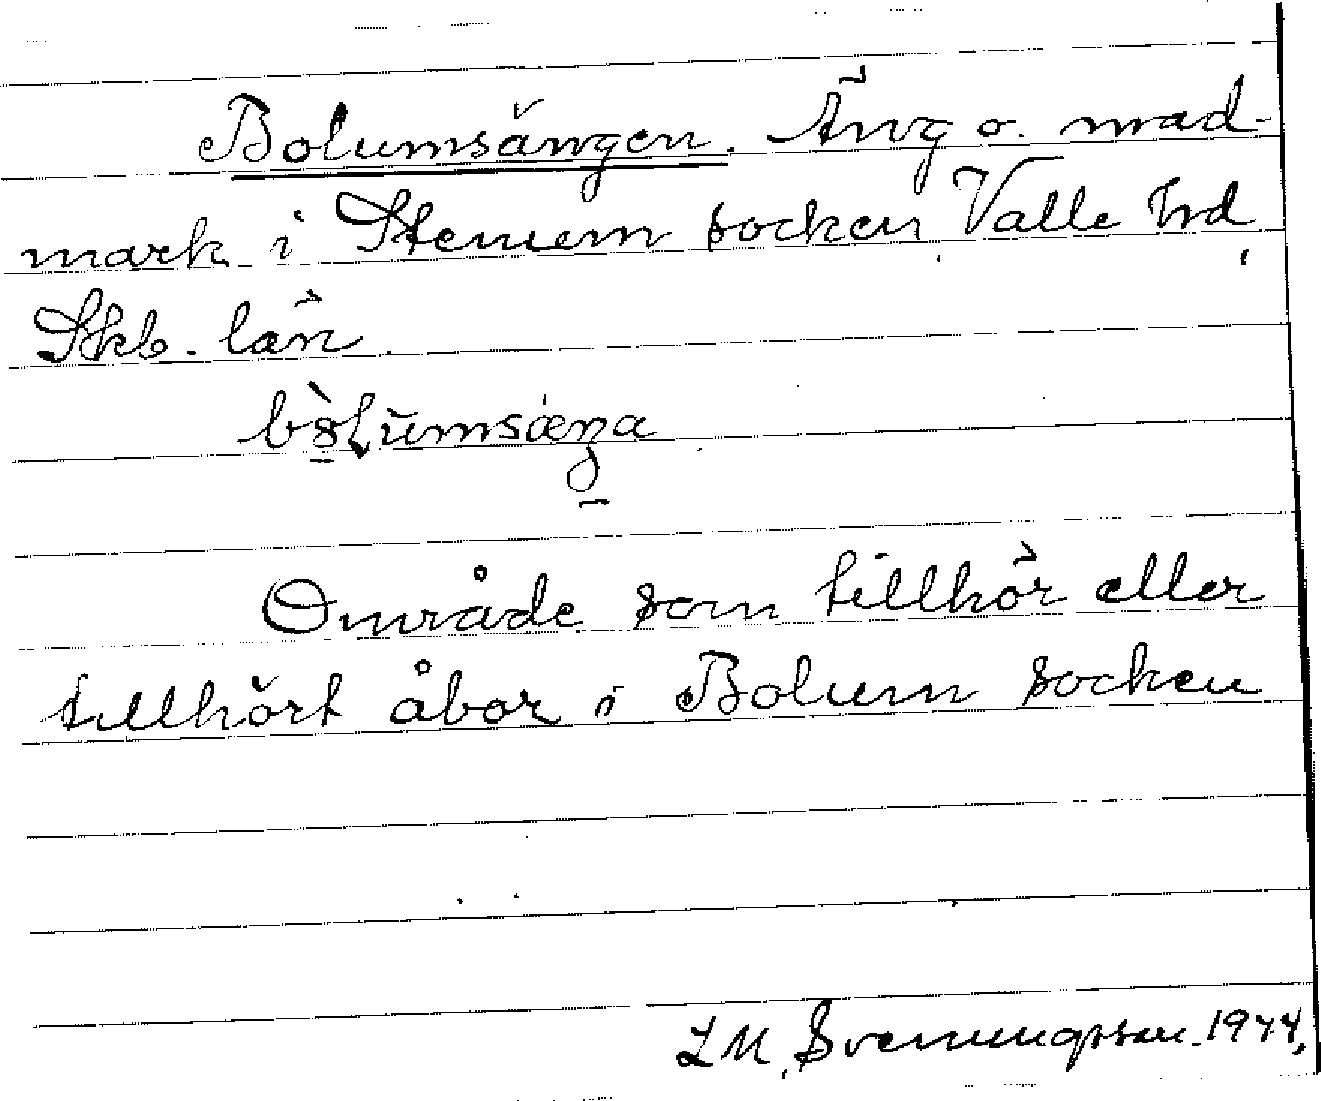 Bolumsängen. Äng o. mad-
mark i Stenum socken, Valle hd,
Skb. län.
bòlumsæŋa
Område som tillhör eller
tillhört åbor i Bolum socken
L M, Svenungsson. 1944.